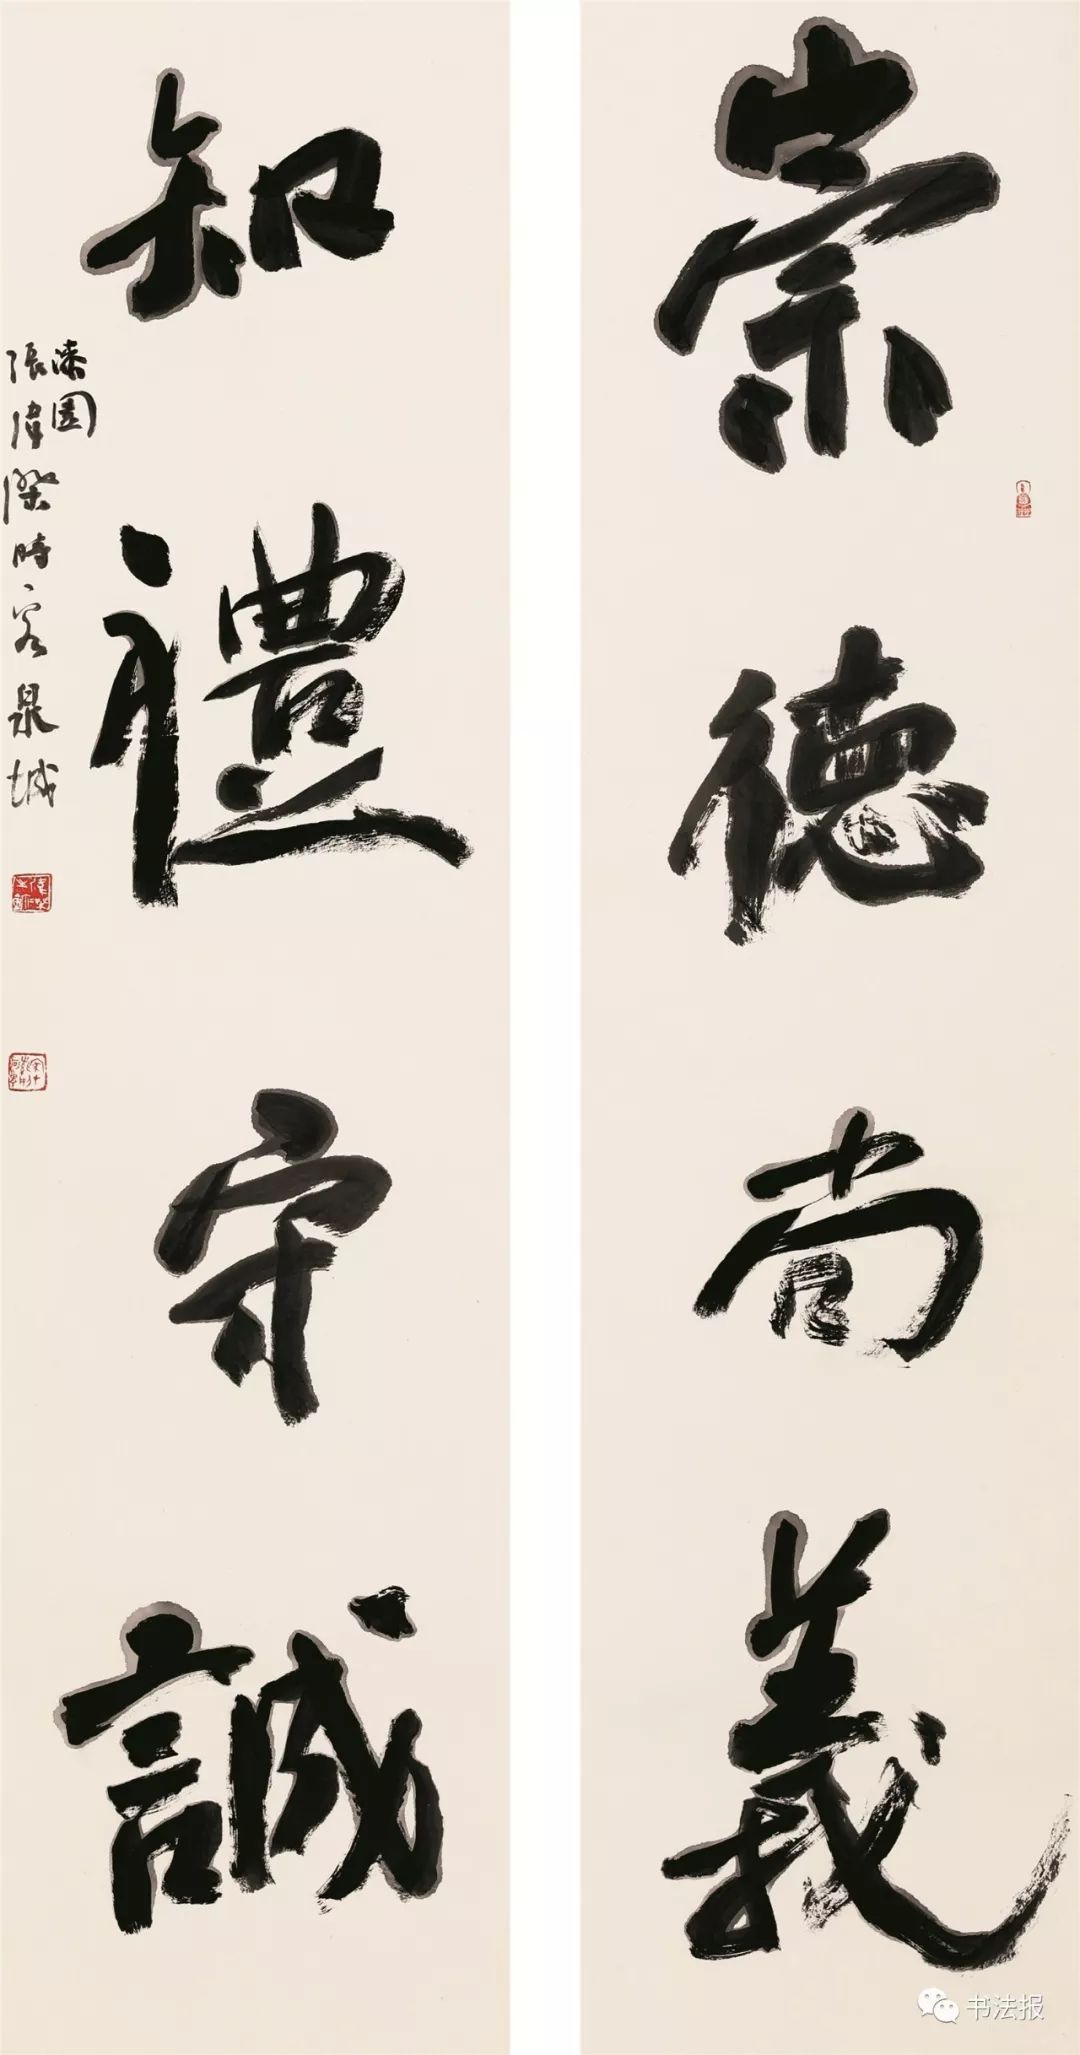 崇德尚義
知禮守誠
漆園
張偉傑時客泉城
书法报